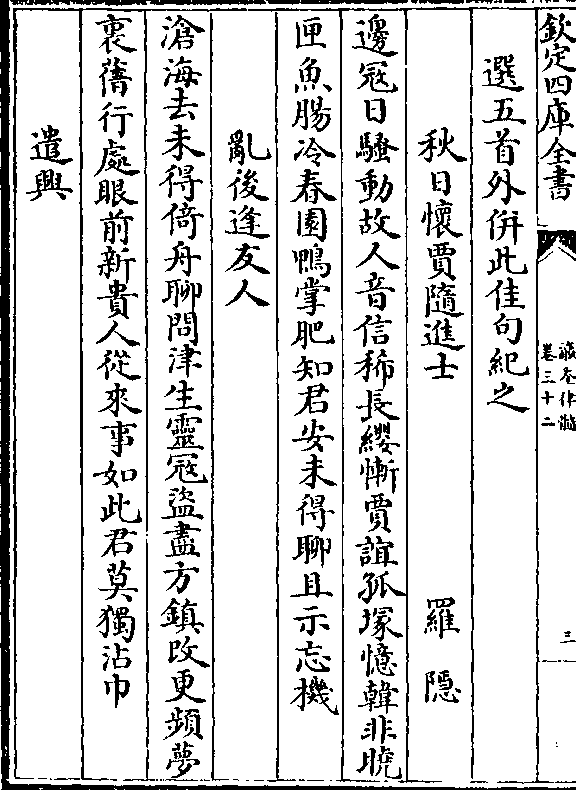 欽定四庫全書
瀛奎律髓
卷三十二
三
選五首外併此佳句紀之
秋日懷賈隨進士
羅隱
邊寇日騷動故人音信稀長纓慚賈誼孤塚憶韓非曉
匣魚腸冷春園鴨掌肥知君安未得聊且示忘機
亂後逢友人
滄海去未得倚舟聊問津生靈寇盜盡方鎮改更頻夢
裏舊行處眼前新貴人從來事如此君莫獨沾巾
遣興